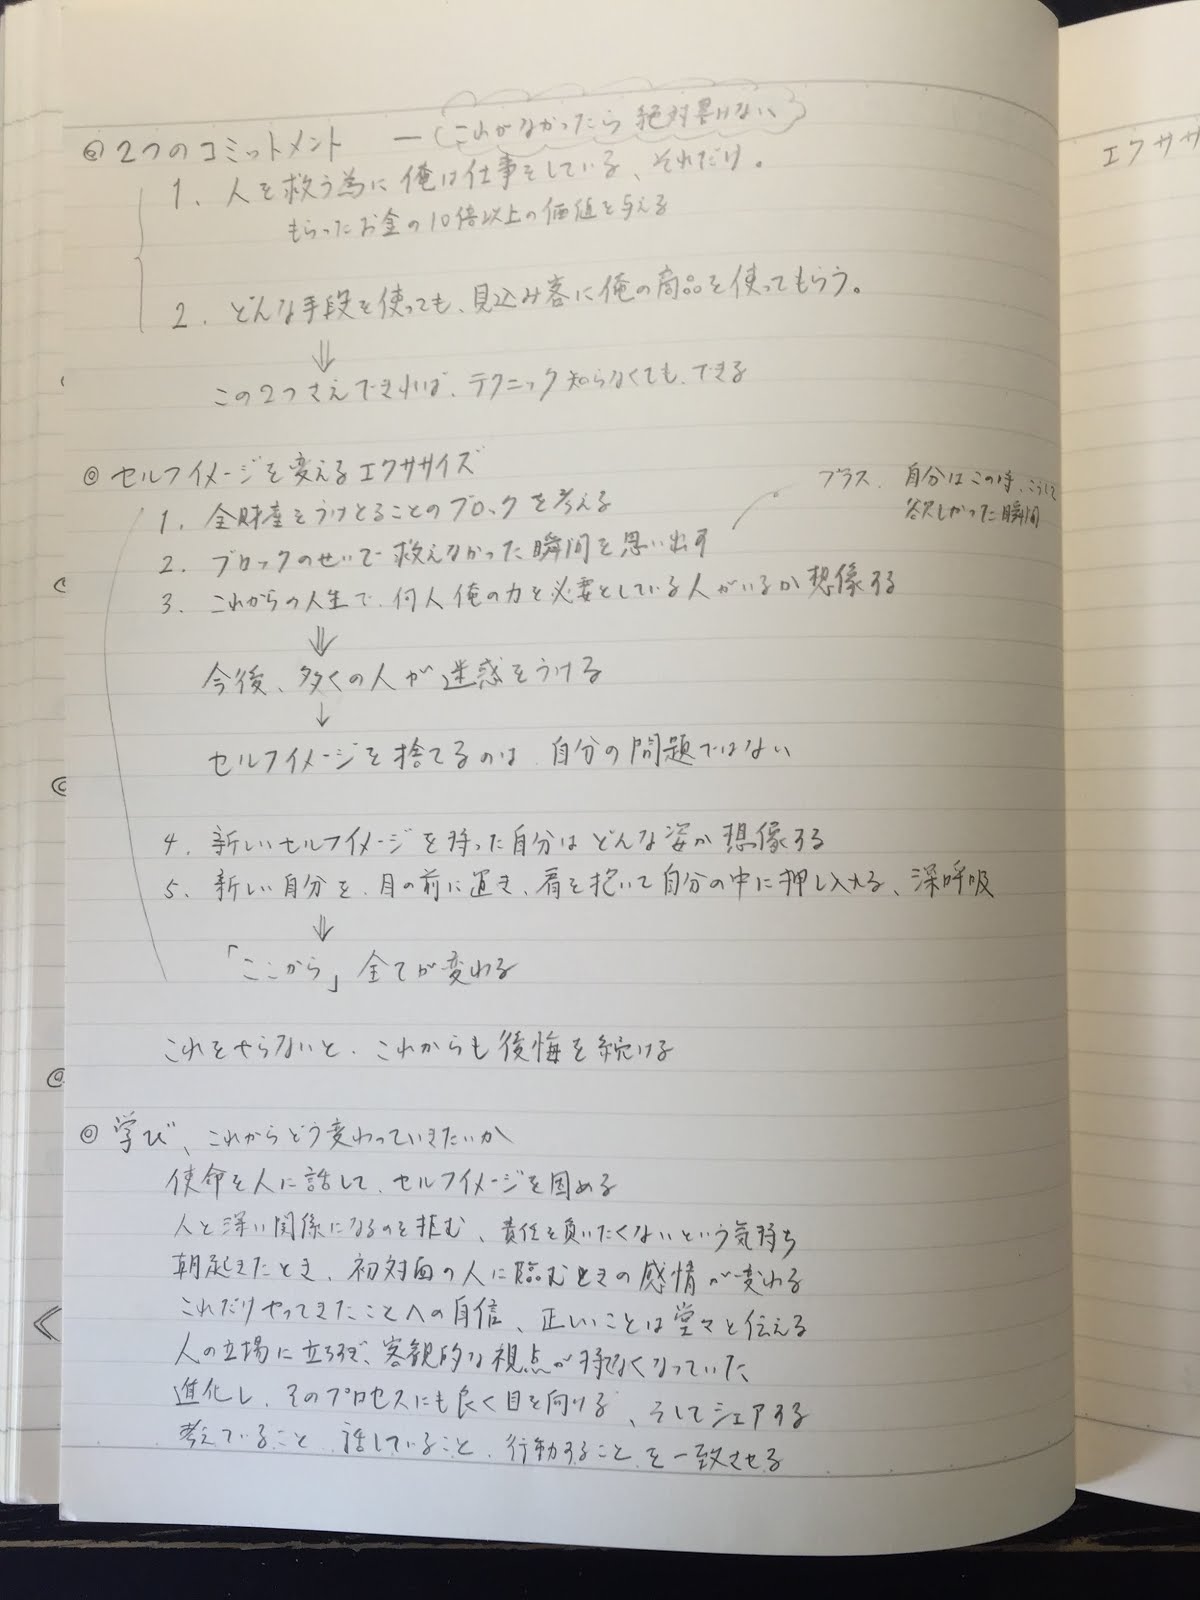 ◎ 2つのコミットメント ―(これがなかったら 絶対書けない)
1. 人を救う為に俺は仕事をしている、それだけ。
もらったお金の10倍以上の価値を与える
2. どんな手段を使っても、見込み客に俺の商品を使ってもらう。
⇓
この2つさえできれば、テクニック知らなくても、できる
◎ セルフイメージを変えるエクササイズ
1. 全財産をうけとることのブロックを考える
プラス、自分はこの時、こうして
欲しかった瞬間
2. ブロックのせいで救えなかった瞬間を思い出す
3. これからの人生で、何人俺の力を必要としている人がいるか想像する
⇓
今後、多くの人が迷惑をうける
↓
セルフイメージを捨てるのは、自分の問題ではない
4. 新しいセルフイメージを持った自分はどんな姿か想像する
5. 新しい自分を、目の前に置き、肩を抱いて自分の中に押し入れる、深呼吸
⇓
「ここから」全てが変わる
これをやらないと、これからも後悔を続ける
◎ 学び、これからどう変わっていきたいか
使命を人に話して、セルフイメージを固める
人と深い関係になるのを拒む、責任を負いたくないという気持ち
朝起きたとき、初対面の人に臨むときの感情が変わる
これだけやってきたことへの自信、正しいことは堂々と伝える
人の立場に立てず、客観的な視点が持てなくなっていた
進化し、そのプロセスにも良く目を向ける、そしてシェアする
考えていること、話していること、行動することを一致させる
エクササ